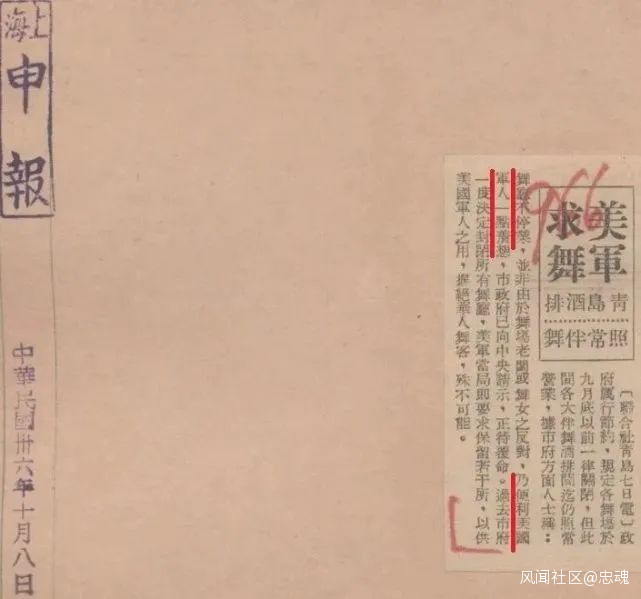 上海
申報
中華民國卅六年十月八日
966
美軍
求舞
青島酒排
照常伴舞
〔聯合社青島七日電〕政
府厲行節約，規定各舞場於
九月底以前一律關閉，但此
間各大伴舞酒排間迄仍照常
營業，據市府方面人士稱：
舞廳不停業，並非由於舞場老闆或舞女之反對，乃便利美國
軍人一點着想，市政府已向中央請示，正待覆命。過去市府
一度決定封閉所有舞廳，美軍當局即要求保留若干所，以供
美國軍人之用，摒絕華人舞客，殊不可能。
风闻社区@忠魂